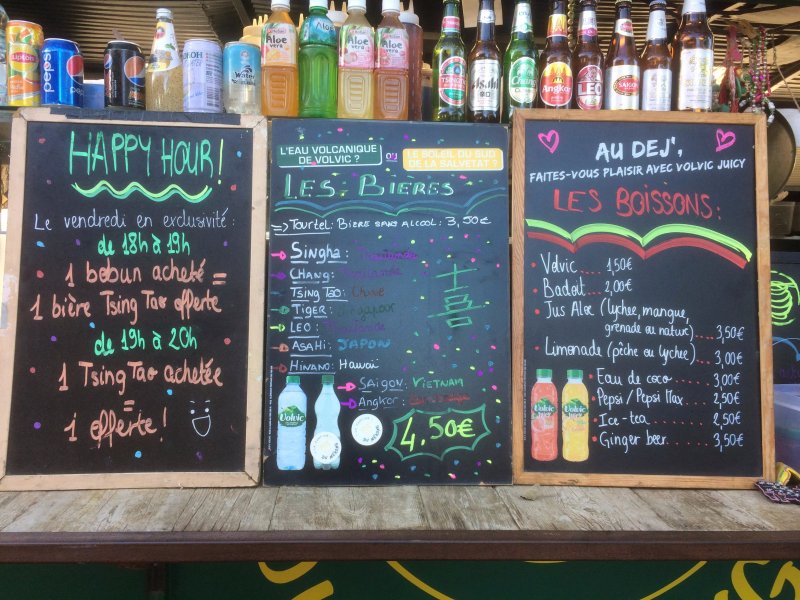 HAPPY HOUR!
Le vendredi en exclusivité :
de 18h à 19h
1 bobun acheté =
1 bière Tsing Tao offerte
de 19h à 20h
1 Tsing Tao achetée
=
1 offerte !
L'EAU VOLCANIQUE
DE VOLVIC ?
OU
LE SOLEIL DU SUD
DE LA SALVETAT ?
LES BIERES
=> Tourtel : Bière sans alcool : 3,50€
Singha : Thaïlande
Chang : Thaïlande
Tsing Tao : Chine
Tiger : Singapour
Leo : Thaïlande
Asahi : Japon
Hinano : Hawaï
Saigon : Vietnam
Angkor :
4,50€
Volvic
AU DEJ',
FAITES-VOUS PLAISIR AVEC VOLVIC JUICY
LES BOISSONS :
Volvic .... 1,50€
Badoit .... 2,00€
Jus Aloe (lychee, mangue,
grenade ou nature) .... 3,50€
Limonade (pêche ou lychee) .... 3,00€
Eau de coco .... 3,00€
Pepsi / Pepsi Max .... 2,50€
Ice-tea .... 2,50€
Ginger beer .... 3,50€
Volvic
Volvic
pepsi
Aloe vera
Aloe vera
Aloe vera
Water
TSINGTAO
Asahi
Chang
Angkor
LEO
SAIGON